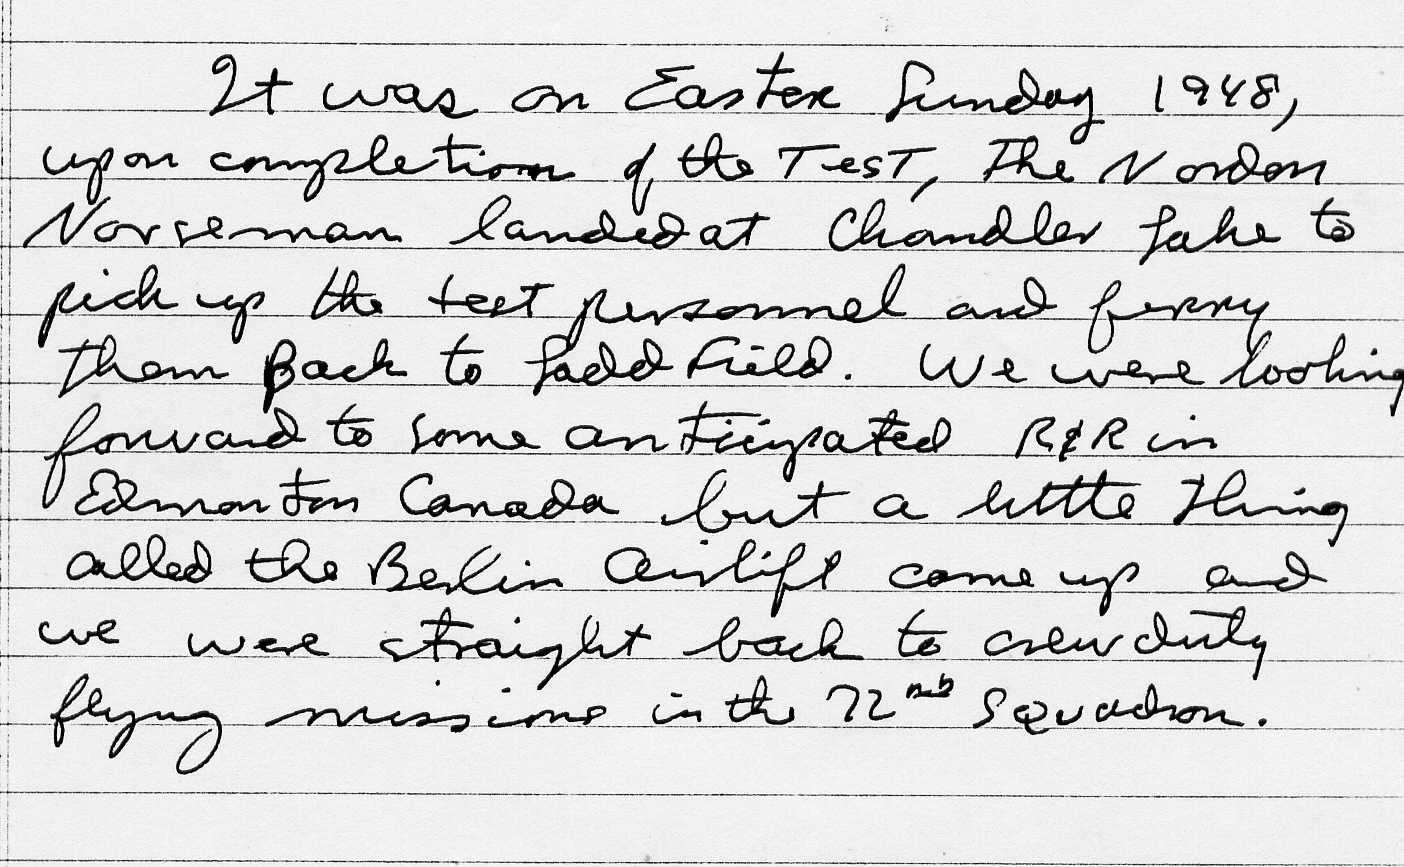 It was on Easter Sunday 1948,
upon completion of the Test, The Nordon
Norseman landed at Chandler Lake to
pick up the test personnel and ferry
them Back to Ladd Field. We were looking
forward to some anticipated R&R in
Edmonton Canada but a little thing
called the Berlin Airlift came up and
we were straight back to crew duty
flying missions in the 72nd Squadron.